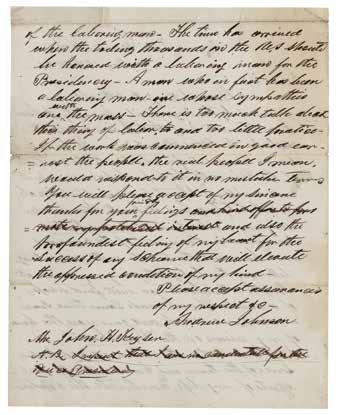 of the laboring man - The time has arrived
when the toiling thousands in the U.S. should
be honored with a laboring man for the
Presidency - A man who in fact has been
a laboring man - one whose sympathies
are with the mass - There is too much talk about
this thing of labor &c and too little practice -
If the work was commenced in good ear-
=nest the people, the real people I mean,
would respond to it in no mistaken terms
You will please accept of my sincere
thanks for your kind feelings and kind efforts to pro
=mote my political interest and also the
profoundest feeling of my heart for the
success of any scheme that will elevate
the oppressed condition of my kind -
Please accept assurances
of my respect &c -
Andrew Johnson
Mr John. H. Keyser